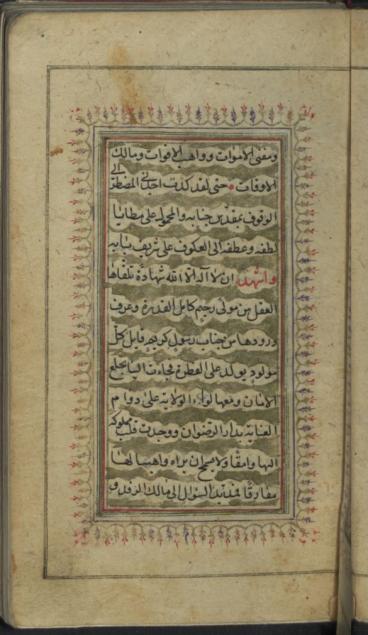 ومفنى الاموات وواهب الاقوات ومالك
الاوقات حتى لقد كدت اجانى المضطر الى
الوقوف بمقدس جنابه والمحول على مطايا
لطفه وعطفه الى العكوف على شريف بابه
واشهد ان لا اله الا الله شهادة تلقاها
العقل من مولى رحيم كامل القدرة وعرف
ورودها من جناب رسول كريم قابل كل
مولود يولد على الفطرة فجاءت الينا بخلع
الامان ومعها لواء الولاية على دوام
العناية بدار الرضوان ووجدت قلب مملوكه
اليها وامقا ولا يصلح ان يراه واهبها لها
مفارقا فمد يد السؤال الى مالك الرفد و